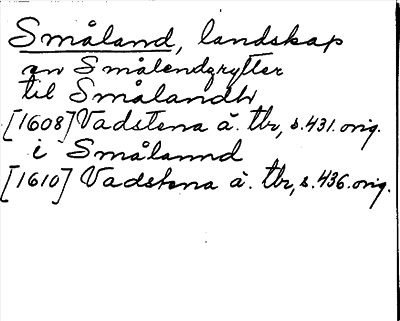 Småland, landskap
en Smålendzrytter
til Smålandh
[1608] Vadstena ä. tbr, s. 431. orig.
i Smålannd
[1610] Vadstena ä. tbr, s. 436. orig.